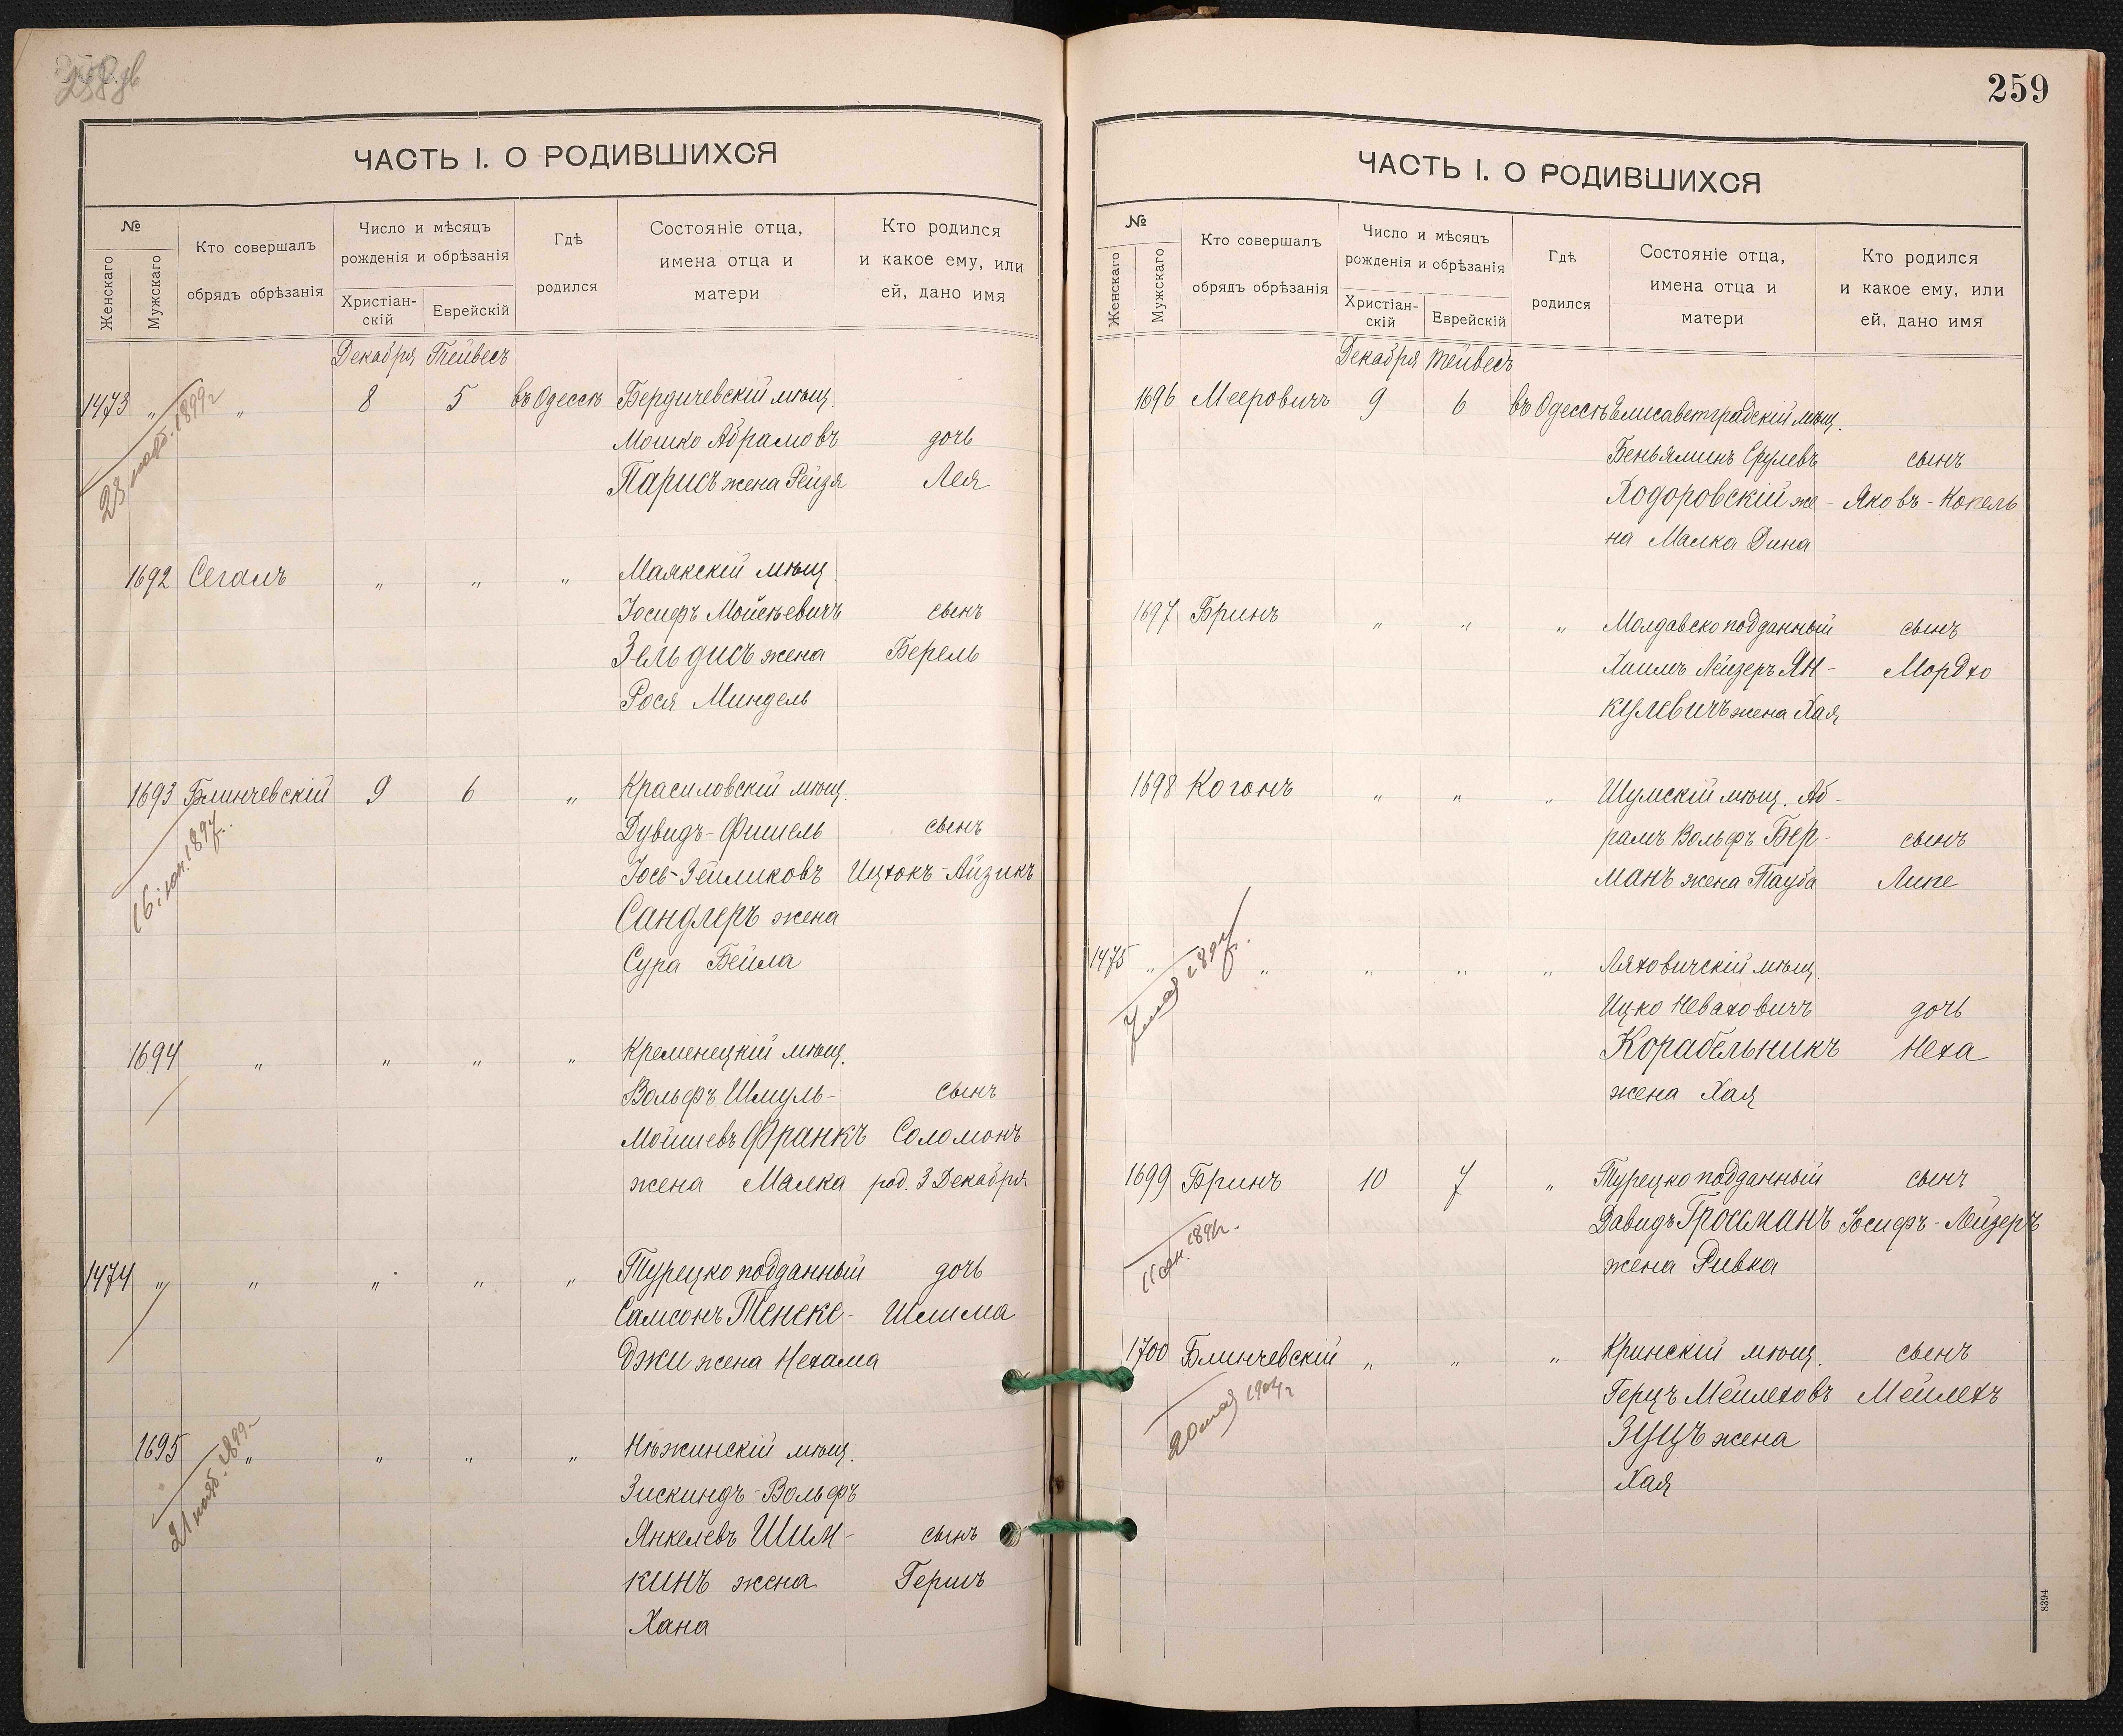 ЧАСТЬ I. О РОДИВШИХСЯ
№
Женскаго
Мужскаго
Кто совершалъ
обрядъ обрѣзанія
Число и мѣсяцъ
рожденія и обрѣзанія
Христіан-
скій
Еврейскій
Гдѣ
родился
Состояніе отца,
имена отца и
матери
Кто родился
и какое ему, или
ей, дано имя
Декабря Тейвесъ
1473 " " 8 5 въ Одессѣ Бердичевскій мѣщ.
Мошко Абрамовъ дочь
Парисъ жена Рейзя Лея
23 нояб. 1899 г
1692 Сегалъ " " " Маякскій мѣщ.
Іосифъ Мойсѣевичъ сынъ
Зельдисъ жена Берель
Рося Миндель
1693 Блинчевскій 9 6 " Красиловскій мѣщ.
Дувидъ-Фишель сынъ
Іось-Зейликовъ Ицхокъ-Айзикъ
Сандлеръ жена
Сура Бейла
1897
1694 " " " " Кременецкій мѣщ.
Вольфъ Шмуль-
сынъ
Мойшевъ Франкъ Соломонъ
жена Малка род. 3 Декабря
1474 " " " " " Турецко подданный дочь
Самсонъ Тенеке-
джи жена Нехама
1695 " " " " Нѣжинскій мѣщ.
Зискиндъ-Вольфъ
Янкелевъ Шим- сынъ
кинъ жена Гершъ
Хана
21 нояб. 1899 г
259
ЧАСТЬ I. О РОДИВШИХСЯ
№
Женскаго
Мужскаго
Кто совершалъ
обрядъ обрѣзанія
Число и мѣсяцъ
рожденія и обрѣзанія
Христіан-
скій
Еврейскій
Гдѣ
родился
Состояніе отца,
имена отца и
матери
Кто родился
и какое ему, или
ей, дано имя
Декабря Тейвесъ
1696 Мееровичъ 9 6 въ Одессѣ Елисаветградскій мѣщ.
Беньяминъ Срулевъ сынъ
Ходоровскій же- Яковъ-Копель
на Малка Дина
1697 Бринъ " " " Молдавско подданный сынъ
Хаимъ Лейзеръ Ян- Мордхо
кулевичъ жена Хая
1698 Когонъ " " " Шумскій мѣщ. Аб-
рамъ Вольфъ Бер- сынъ
манъ жена Тауба Липе
1475 " " " " " Ляховичскій мѣщ.
Ицко Неваховичъ дочь
Корабельникъ Неха
жена Хая
1897
1699 Бринъ 10 7 " Турецко подданный сынъ
Давидъ Гроссманъ Іосифъ-Лейзеръ
жена Ривка
1700 Блинчевскій " " " Кринскій мѣщ. сынъ
Герцъ Мейлеховъ Мейлехъ
Зуцъ жена
Хая
20 мая 1904 г
8394